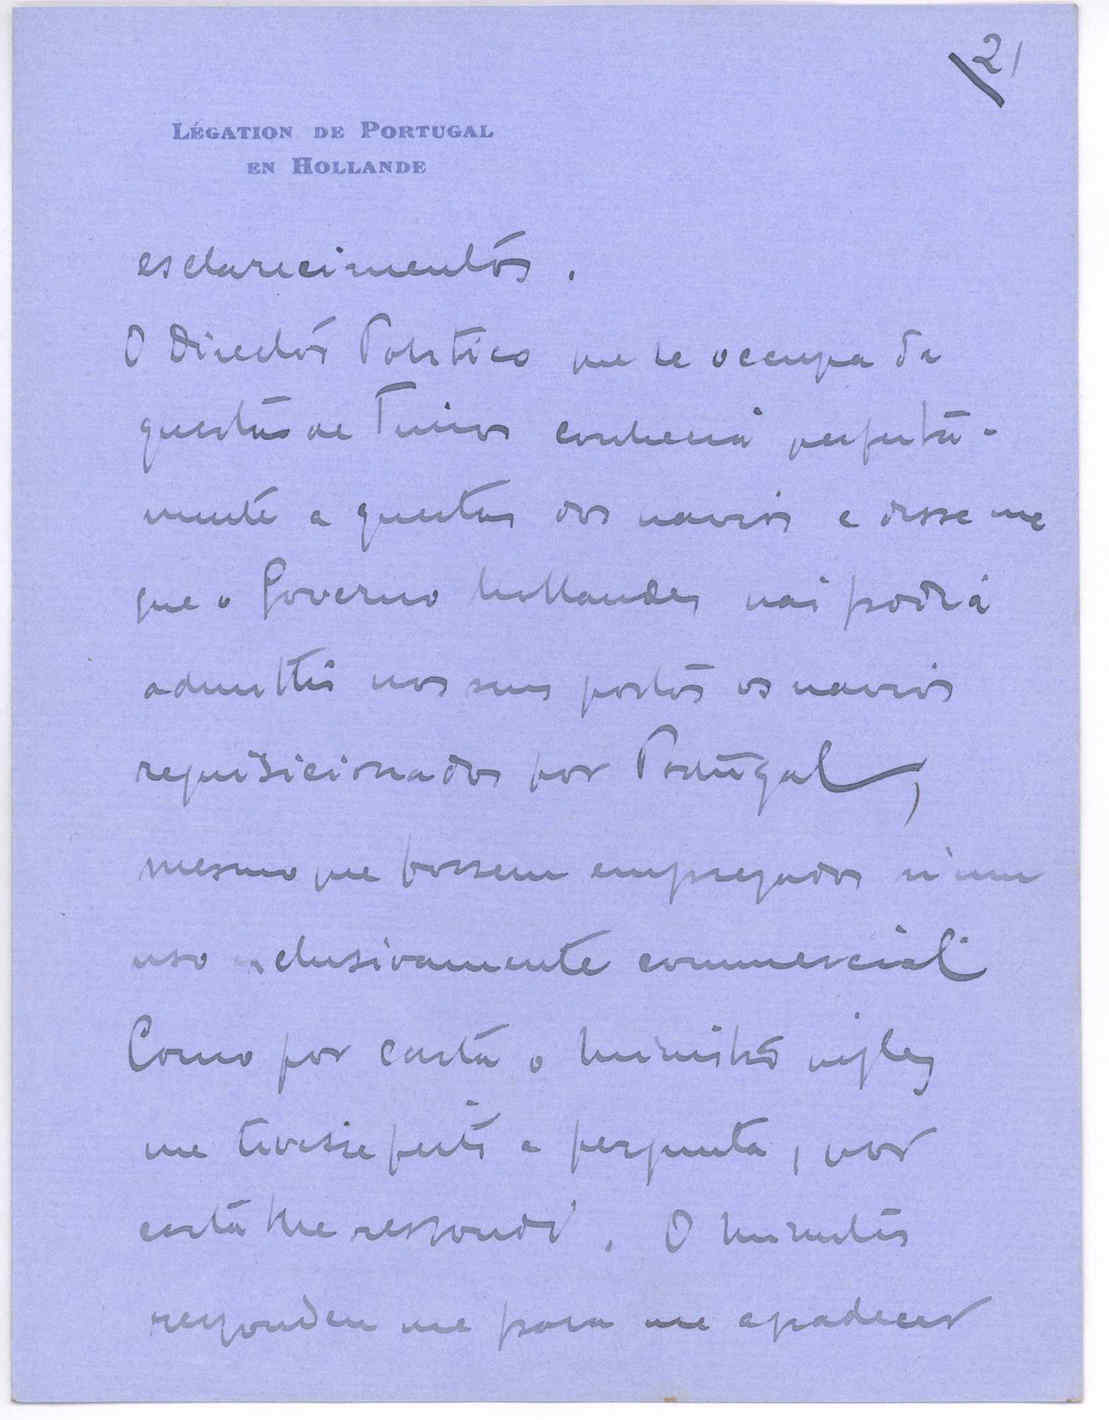 21
LÉGATION DE PORTUGAL
EN HOLLANDE
esclarecimentos.
O Director Politico que se occupa da
questão de Timor conhecia perfeita-
mente a questão dos navios e disse me
que o Governo hollandez não podia
admittir nos seus portos os navios
requisicionados por Portugal,
mesmo que fossem empregados n'um
uso exclusivamente commercial
Como por carta o ministro inglez
me tivesse feito a pergunta, por
carta lhe respondi. O ministro
respondeu me para me agradecer